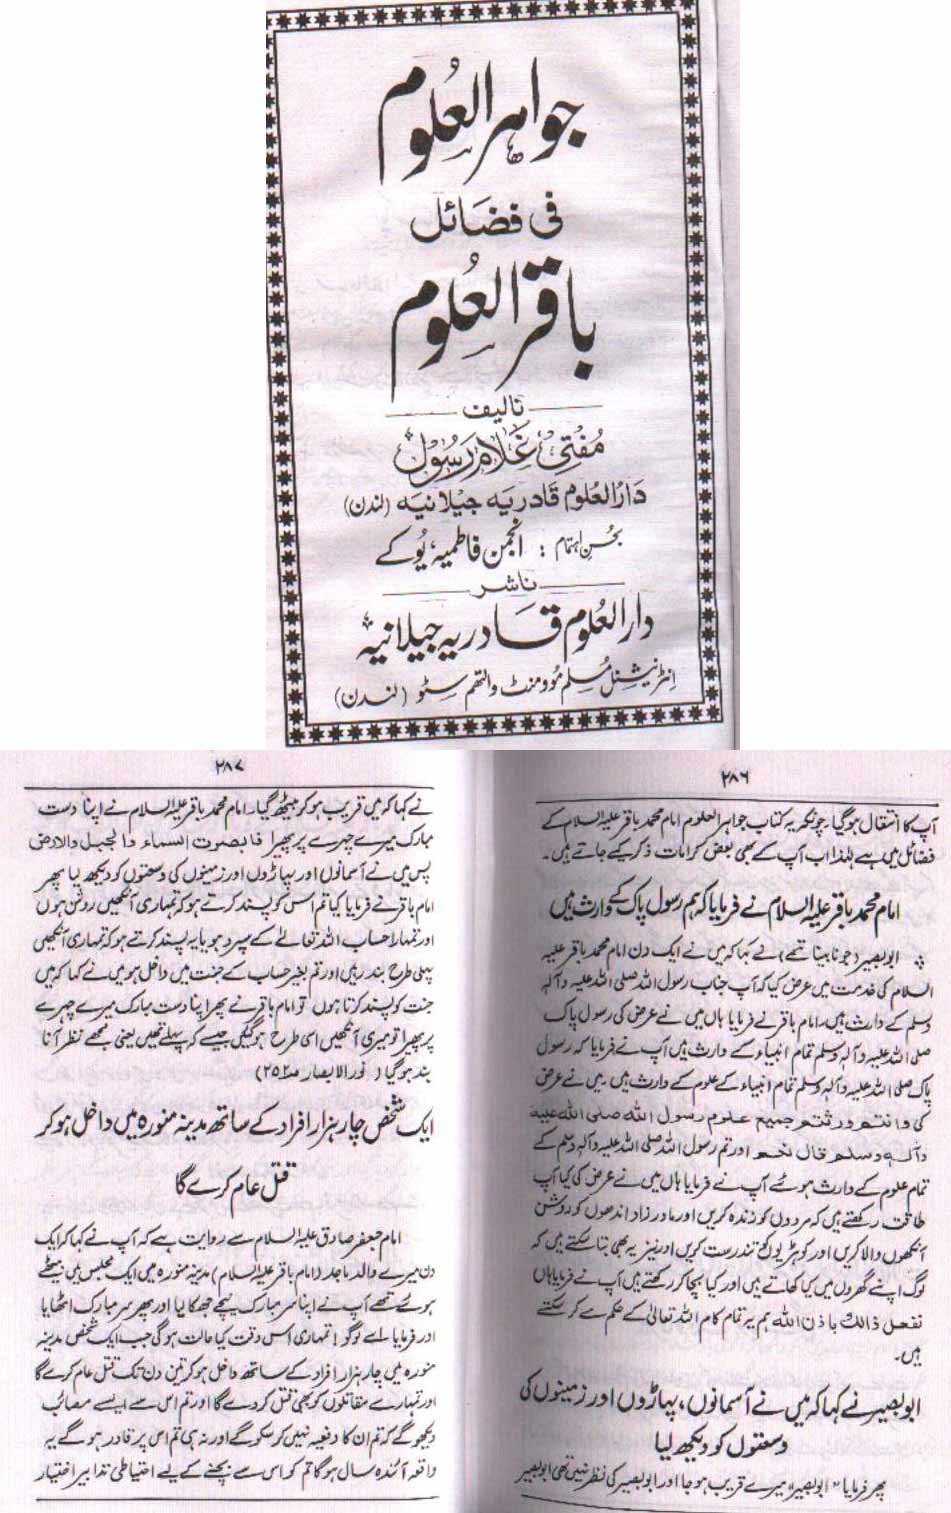 جواہر العُلوم
فی فضَائل
باقر العُلوم
تالیف
مُفتی غلام رَسُول
دَارُالعُلوم قادریہ جیلانیہ (لندن)
بحُسنِ اہتمام : انجمن فاطمیہ یُوکے
ناشر
دارالعُلوم قادریہ جیلانیہ
انٹرنیشنل مُسلم موومنٹ والتھم سٹو (لندن)
۲۸۶
آپ کا انتقال ہوگیا۔ چونکہ یہ کتاب جواہر العلوم امام محمد باقر علیہ السلام کے
فضائل میں ہے لہٰذا اب آپ کے بھی بعض کرامات ذکر کیے جاتے ہیں۔
امام محمد باقر علیہ السلام نے فرمایا کہ ہم رسول پاک کے وارث ہیں
ابوبصیر (جو نابینا تھے) نے کہا کہ میں نے ایک دن امام محمد باقر علیہ
السلام کی خدمت میں عرض کیا کہ آپ جناب رسول اللہ صلی اللہ علیہ وآلہ
وسلم کے وارث ہیں، امام باقر نے فرمایا ہاں میں نے عرض کی رسول پاک
صلی اللہ علیہ وآلہ وسلم تمام انبیاء کے وارث ہیں آپ نے فرمایا کہ رسول
پاک صلی اللہ علیہ وآلہ وسلم تمام انبیاء کے علوم کے وارث ہیں۔ میں نے عرض
کی وانتم ورثتم جمیع علوم رسول اللہ صلی اللہ علیہ
وآلہ وسلم قال نعم اور تم رسول اللہ صلی اللہ علیہ وآلہ وسلم کے
تمام علوم کے وارث ہوئے آپ نے فرمایا ہاں میں نے عرض کی کیا آپ
طاقت رکھتے ہیں کہ مردوں کو زندہ کریں اور مادر زاد اندھوں کو روشن
آنکھوں والا کریں اور کوہڑیوں کو تندرست کریں اور نیز یہ بھی بتا سکتے ہیں کہ
لوگ اپنے گھروں میں کیا کھاتے ہیں اور کیا بچا کر رکھتے ہیں آپ نے فرمایا ہاں
نفعل ذالک باذن اللہ ہم یہ تمام کام اللہ تعالیٰ کے حکم سے کر سکتے
ہیں۔
ابوبصیر نے کہا کہ میں نے آسمانوں، پہاڑوں اور زمینوں کی
وسعتوں کو دیکھ لیا
پھر فرمایا "ابوبصیر" میرے قریب ہوجا اور ابوبصیر کی نظر نہیں تھی ابوبصیر
۲۸۷
نے کہا کہ میں قریب ہو کر بیٹھ گیا۔ امام محمد باقر علیہ السلام نے اپنا دست
مبارک میرے چہرے پر پھیرا فابصرت السماء والجبل والارض
پس میں نے آسمانوں اور پہاڑوں اور زمینوں کی وسعتوں کو دیکھ لیا پھر
امام باقر نے فرمایا کیا تم اس کو پسند کرتے ہو کہ تمہاری آنکھیں روشن ہوں
اور تمہارا حساب اللہ تعالےٰ کے سپرد ہو یا یہ پسند کرتے ہو کہ تمہاری آنکھیں
پہلی طرح بند رہیں اور تم بغیر حساب کے جنت میں داخل ہو میں نے کہا کہ میں
جنت کو پسند کرتا ہوں تو امام باقر نے پھر اپنا دست مبارک میرے چہرے
پر پھیرا تو میری آنکھیں اسی طرح ہوگئیں جیسے کہ پہلے تھیں یعنی مجھے نظر آنا
بند ہو گیا (نور الابصار ص۲۵۲)
ایک شخص چار ہزار افراد کے ساتھ مدینہ منورہ میں داخل ہو کر
قتل عام کرے گا
امام جعفر صادق علیہ السلام سے روایت ہے کہ آپ نے کہا کہ ایک
دن میرے والد ماجد (امام باقر علیہ السلام) مدینہ منورہ میں ایک مجلس میں بیٹھے
ہوئے تھے آپ نے اپنا سر مبارک نیچے جھکا لیا اور پھر سر مبارک اٹھایا
اور فرمایا اے لوگو! تمہاری اس وقت کیا حالت ہوگی جب ایک شخص مدینہ
منورہ میں چار ہزار افراد کے ساتھ داخل ہو کر تین دن تک قتل عام کرے گا
اور تمہارے مقاتلوں کو بھی قتل کر دے گا اور تم اس سے ایسے مصائب
دیکھو گے کہ تم ان کا دفعیہ نہیں کر سکو گے اور نہ ہی تم اس پر قادر ہو گے یہ
واقعہ آئندہ سال ہوگا تم کو اس سے بچنے کے لیے احتیاطی تدابیر اختیار